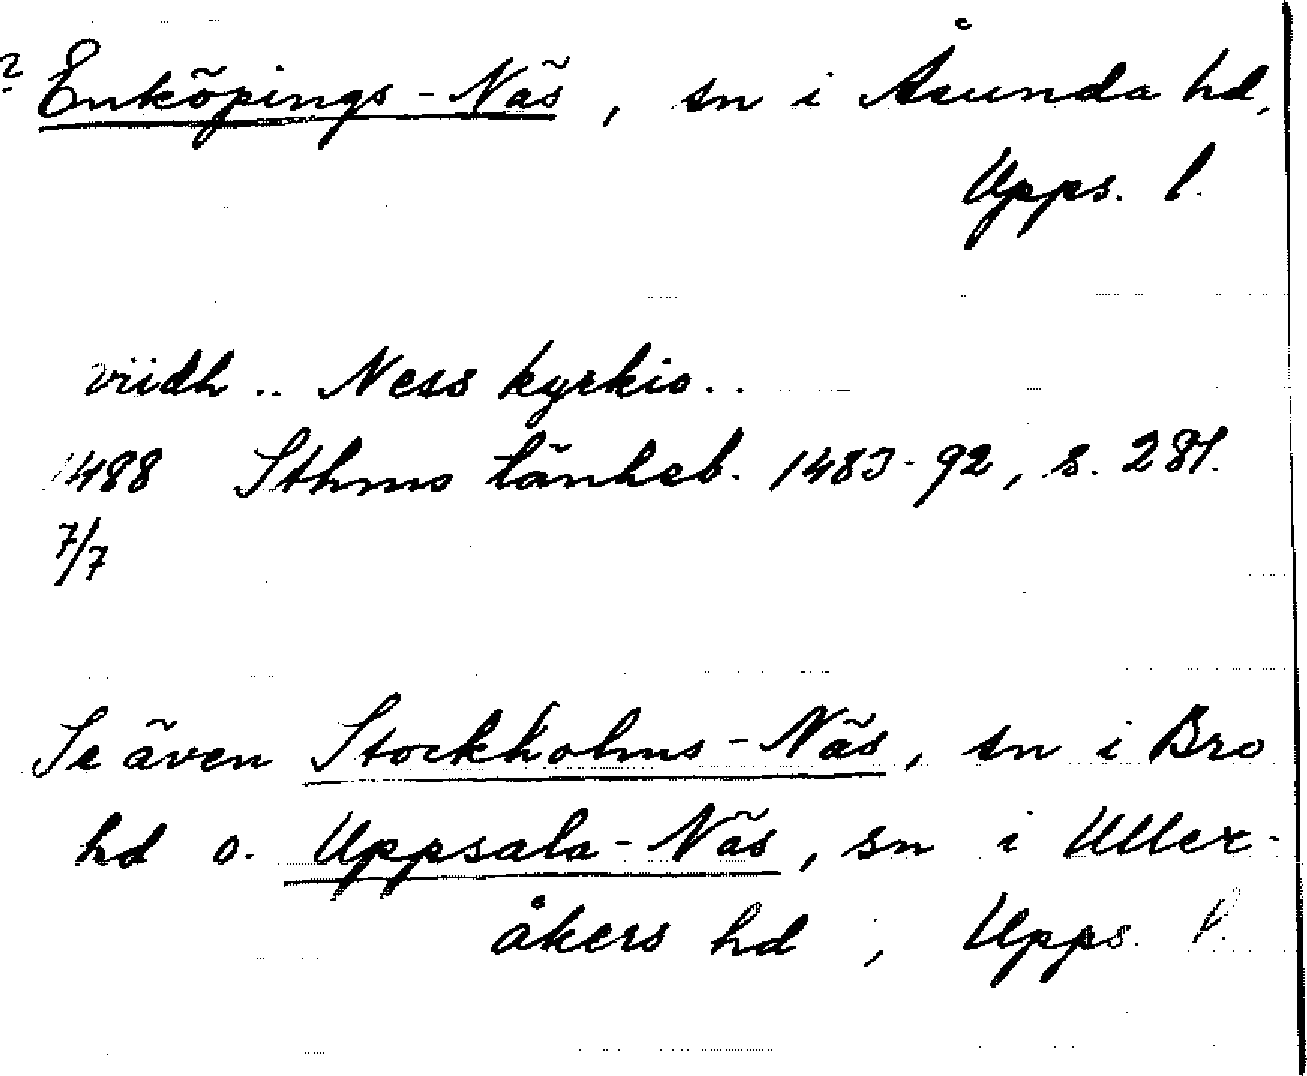 ? Enköpings-Näs, sn i Åsunda hd,
Upps. l.
viidh .. Ness kyrkio..
1488 Sthms tänkeb. 1483-92, s. 287.
7/7
Se även Stockholms-Näs, sn i Bro
hd o. Uppsala-Näs, sn i Uller-
åkers hd, Upps. l.